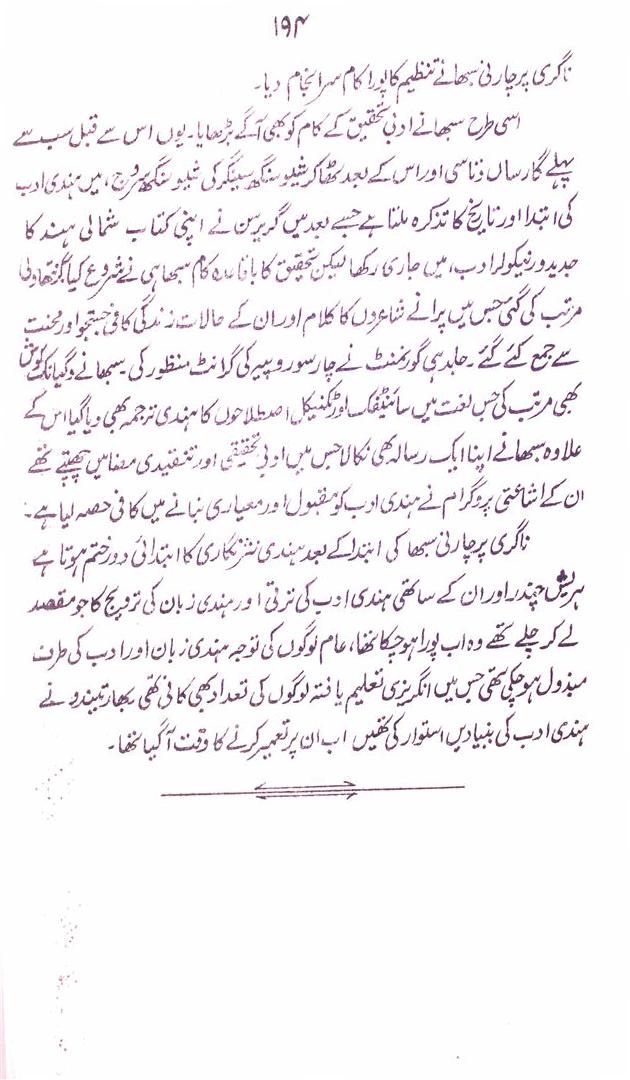 ۱۹۴
ناگری پرچارنی سبھا نے تنظیم کا پورا کام سرانجام دیا۔
اسی طرح سبھا نے ادبی تحقیق کے کام کو بھی آگے بڑھایا۔ یوں اس سے قبل سب سے
پہلے گارساں دتاسی اور اس کے بعد ٹھاکر شیو سنگھ سینگر کی شیو سنگھ سروج، میں ہندی ادب
کی ابتدا اور تاریخ کا تذکرہ ملتا ہے جسے بعد میں گریرسن نے اپنی کتاب شمالی ہند کا
جدید ورنیکولر ادب، میں جاری رکھا لیکن تحقیق کا باقاعدہ کام سبھا ہی نے شروع کیا
مرتب کی گئی جس میں پرانے شاعروں کا کلام اور ان کے حالات زندگی کافی جستجو اور محنت
سے جمع کئے گئے۔ جلد ہی گورنمنٹ نے چار سو روپیہ کی گرانٹ منظور کی سبھا نے وگیانک کوش
بھی مرتب کی جس لغت میں سائنٹفک اور ٹکنیکل اصطلاحوں کا ہندی ترجمہ بھی دیا گیا اس کے
علاوہ سبھا نے اپنا ایک رسالہ بھی نکالا جس میں ادبی تحقیقی اور تنقیدی مضامین چھپتے تھے
ان کے اشاعتی پروگرام نے ہندی ادب کو مقبول اور معیاری بنانے میں کافی حصہ لیا ہے۔
ناگری پرچارنی سبھا کی ابتدا کے بعد ہندی نثر نگاری کا ابتدائی دور ختم ہوتا ہے
ہریش چندر اور ان کے ساتھی ہندی ادب کی ترقی اور ہندی زبان کی ترویج کا جو مقصد
لے کر چلے تھے وہ اب پورا ہو چکا تھا، عام لوگوں کی توجہ ہندی زبان اور ادب کی طرف
مبذول ہو چکی تھی جس میں انگریزی تعلیم یافتہ لوگوں کی تعداد بھی کافی تھی بھارتیندو نے
ہندی ادب کی بنیادیں استوار کی تھیں اب ان پر تعمیر کرنے کا وقت آ گیا تھا۔